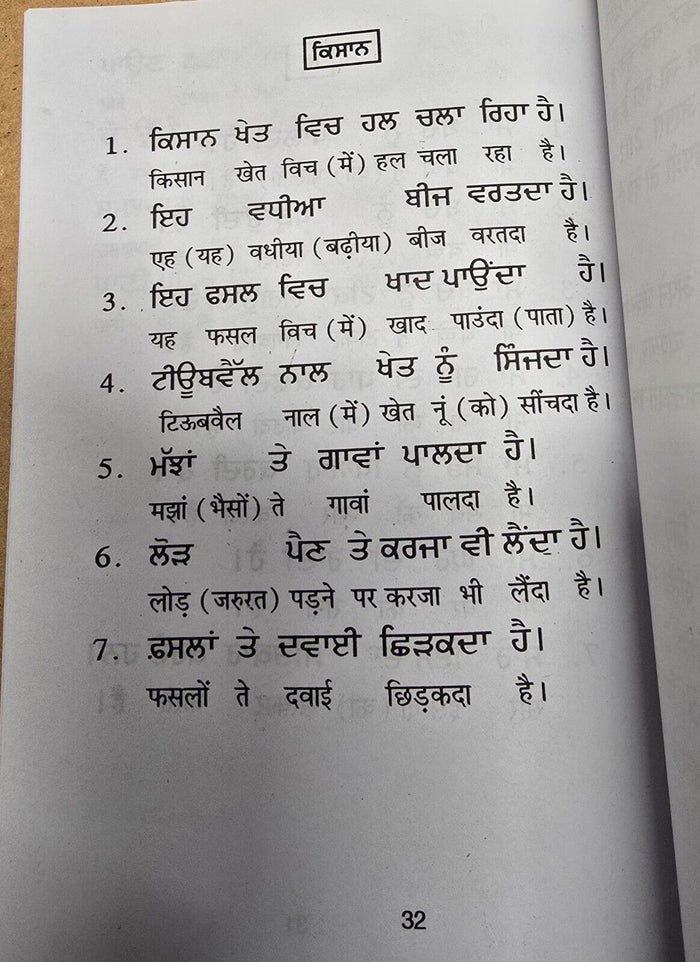 ਕਿਸਾਨ
1. ਕਿਸਾਨ ਖੇਤ ਵਿਚ ਹਲ ਚਲਾ ਰਿਹਾ ਹੈ।
किसान खेत विच (में) हल चला रहा है।
2. ਇਹ ਵਧੀਆ ਬੀਜ ਵਰਤਦਾ ਹੈ।
एह (यह) वधीया (बढ़ीया) बीज वरतदा है।
3. ਇਹ ਫਸਲ ਵਿਚ ਖਾਦ ਪਾਉਂਦਾ ਹੈ।
यह फसल विच (में) खाद पाउंदा (पाता) है।
4. ਟੀਊਬਵੈੱਲ ਨਾਲ ਖੇਤ ਨੂੰ ਸਿੰਜਦਾ ਹੈ।
टिऊबवैल नाल (में) खेत नूं (को) सींचदा है।
5. ਮੱਝਾਂ ਤੇ ਗਾਵਾਂ ਪਾਲਦਾ ਹੈ।
मझां (भैसों) ते गावां पालदा है।
6. ਲੋੜ ਪੈਣ ਤੇ ਕਰਜਾ ਵੀ ਲੈਂਦਾ ਹੈ।
लोड़ (जरुरत) पड़ने पर करजा भी लैंदा है।
7. ਫ਼ਸਲਾਂ ਤੇ ਦਵਾਈ ਛਿੜਕਦਾ ਹੈ।
फसलों ते दवाई छिड़कदा है।
32